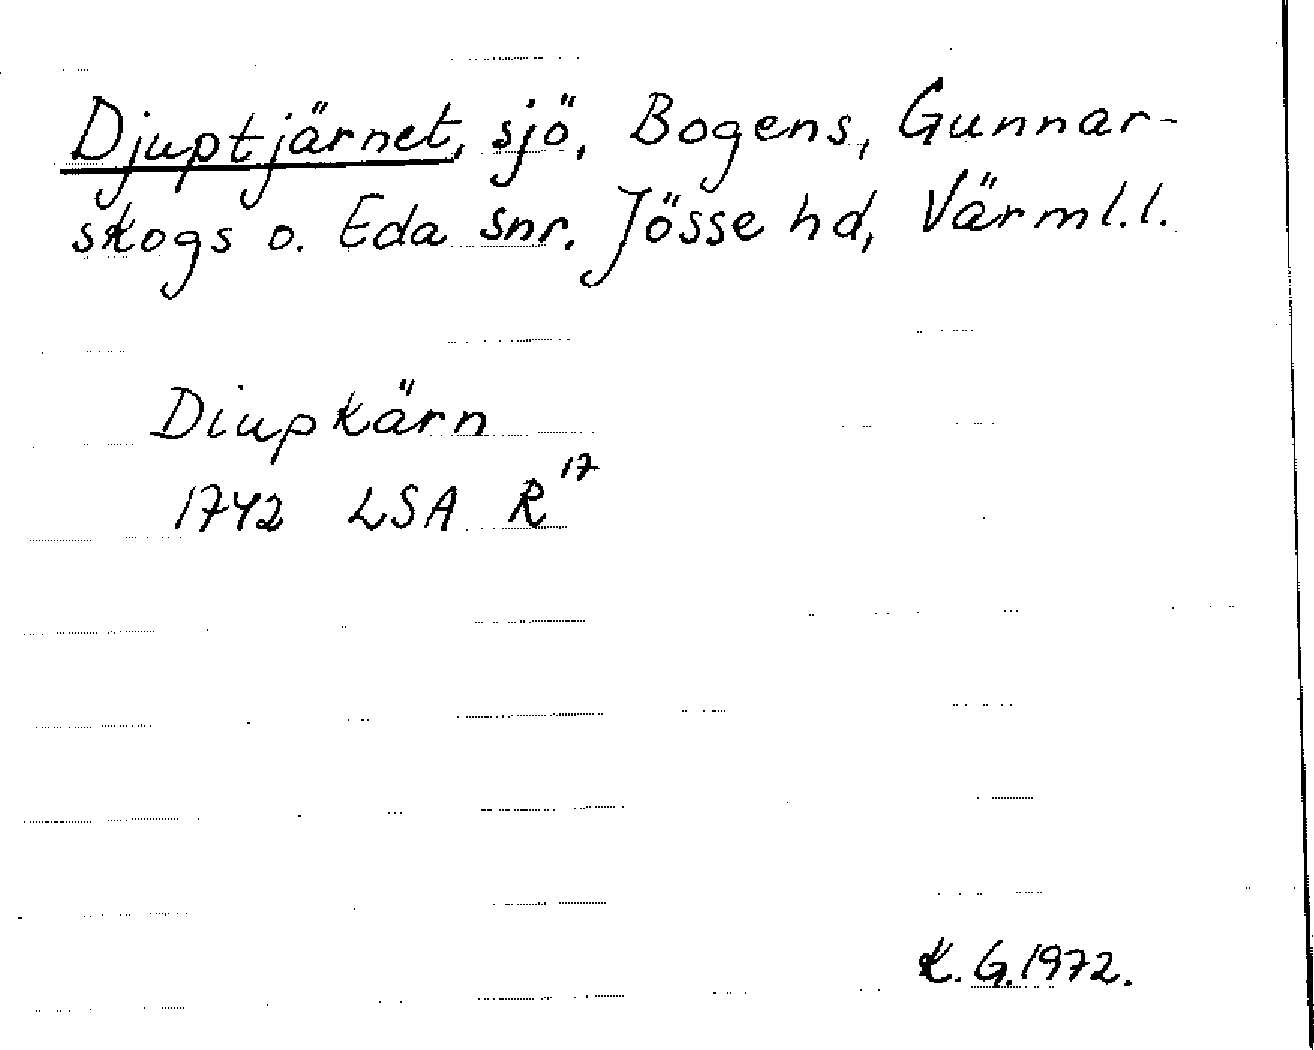 Djuptjärnet, sjö, Bogens, Gunnar-
skogs o. Eda snr. Jösse hd, Värml.l.
Diupkärn
1742 LSA R17
K.G.1972.